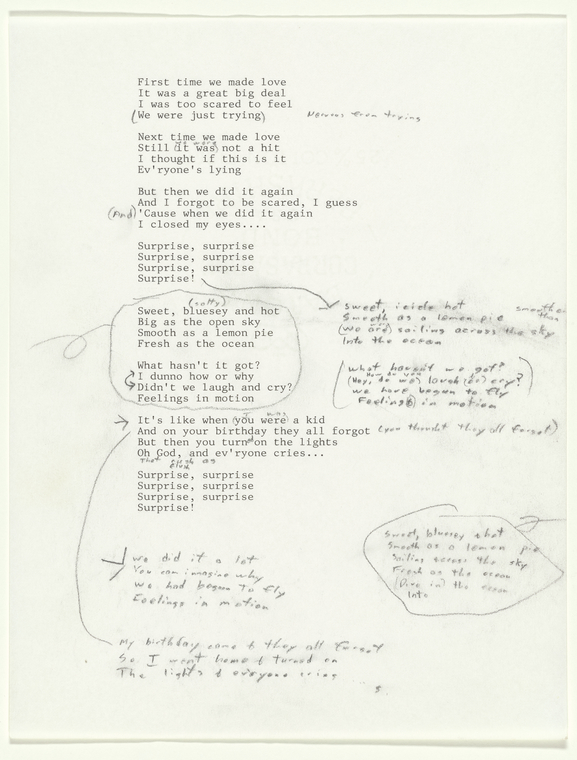 First time we made love
It was a great big deal
I was too scared to feel
(We were just trying)
Nervous from trying
Next time we made love
Still (it was) not a hit
I thought if this is it
Ev'ryone's lying
But then we did it again
And I forgot to be scared, I guess
(And) 'Cause when we did it again
I closed my eyes....
Surprise, surprise
Surprise, surprise
Surprise, surprise
Surprise!
(salty)
Sweet, bluesey and hot
Big as the open sky
Smooth as a lemon pie
Fresh as the ocean
What hasn't it got?
I dunno how or why
Didn't we laugh and cry?
Feelings in motion
sweet, icicle hot
smoother than
Smooth as a lemon pie
(we are) sailing across the sky
Into the ocean
what haven't we got?
(Hey, do we) laugh (or) cry?
we have begun to fly
Feeling(s) in motion
was
It's like when (you were) a kid
And on your birthday they all forgot (you thought they all forgot)
But then you turn on the lights
Oh God, and ev'ryone cries...
Surprise, surprise
Surprise, surprise
Surprise, surprise
Surprise!
Sweet, bluesey & hot
Smooth as a lemon pie
Sailing across the sky
Fresh as the ocean
(Dive in) the ocean
Into
we did it a lot
You can imagine why
We had begun to fly
Feelings in motion
My birthday came & they all forgot
So I went home & turned on
The lights & everyone cries